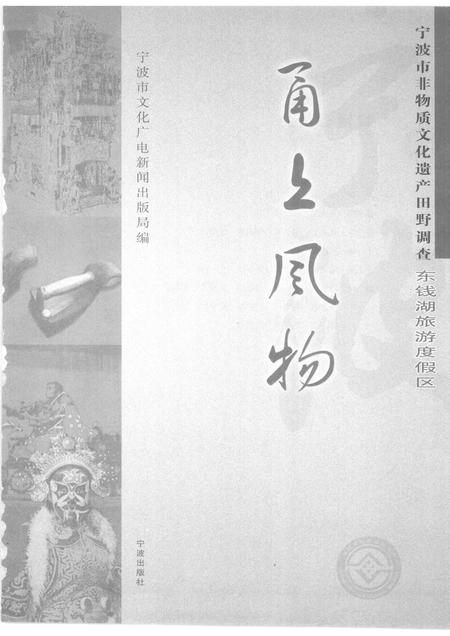 宁波市非物质文化遗产田野调查
东钱湖旅游度假区
甬上风物
宁波市文化广电新闻出版局编
宁波出版社